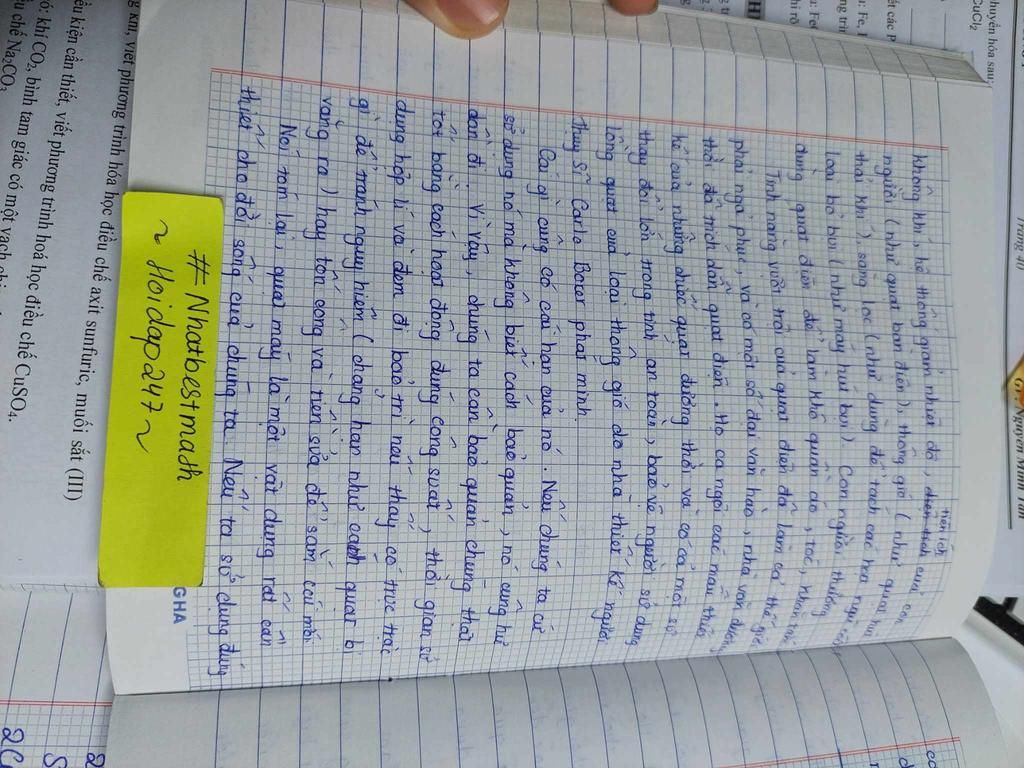 không khí, hệ thống giảm nhiệt độ, tiện ích của con
người (như quạt bàn điện), thông gió (như quạt hút
thải khí), sàng lọc (như dùng để tách các hạt ngũ cốc),
loại bỏ bụi (như máy hút bụi). Con người thường
dùng quạt điện để làm khô quần áo, tóc,
Tính năng vượt trội của quạt điện đã làm cả thế giới
phải ngả phục, và có một số đại văn hào, nhà văn đương
thời đã một dẫn quạt điện. Họ ca ngợi các mẫu thiết
kế của những chiếc quạt đương thời và có cả một sự
thay đổi lớn trong tính an toàn, bảo vệ người sử dụng
lồng quạt của loại thông gió do nhà thiết kế người
Thụy Sĩ Carlo Borer phát minh.
Cái gì cũng có cái hạn của nó. Nếu chúng ta cứ
sử dụng nó mà không biết cách bảo quản, nó cũng hư
dần đi. Vì vậy, chúng ta cần bảo quản chúng thật
tốt bằng cách hoạt động đúng công suất, thời gian sử
dụng hợp lí và đem đi bảo trì nếu thấy có trục trặc
gì để tránh nguy hiểm (chẳng hạn như cánh quạt bị
văng ra) hay tốn công và tiền sửa để sắm cái mới.
Nói tóm lại, quạt máy là một vật dụng rất cần
thiết cho đời sống của chúng ta. Nếu ta sử dụng đúng
#Nhatbestmath
~ Hoidap247 ~
GHA
Trang 40
GV: Nguyễn Minh
chuyển hóa sau:
CuCl₂
g khí, viết phương trình hóa học điều chế axit sunfuric, muối sắt (III)
ều kiện cần thiết, viết phương trình hoá học điều chế CuSO₄.
ó: khí CO₂, bình tam giác có một vạch
ều chế Na₂CO₃